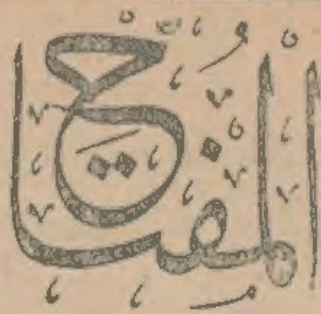 المفتاح